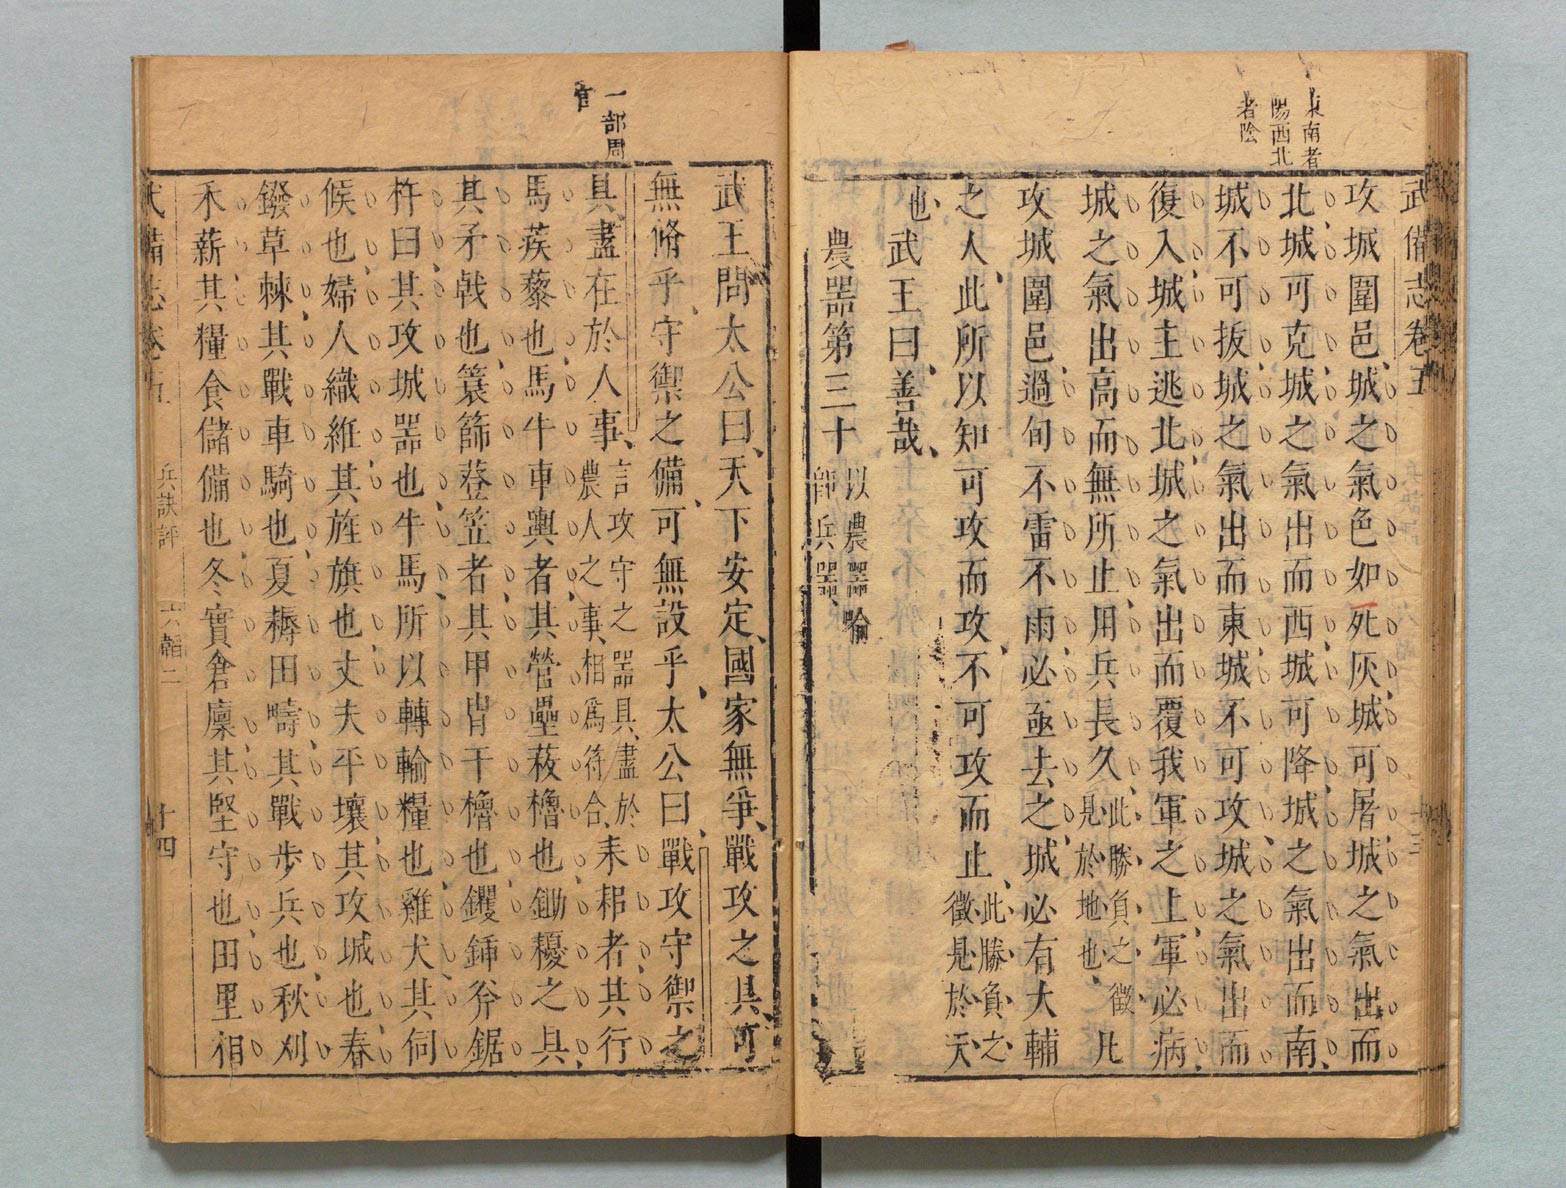 東南者
陽西北
者陰
武備志卷五
攻城圍邑、城之氣色如死灰城可屠城之氣出而
北城可克城之氣出而西城可降城之氣出而南、
城不可拔城之氣出而東城不可攻城之氣出而
復入城主逃北城之氣出而覆我軍之上軍必病、
城之氣出高而無所止用兵長久、此勝負之徵見於地也、凡
攻城圍邑過旬不雷不雨必亟去之、城必有大輔
之人、此所以知可攻而攻、不可攻而止、此勝負之徵見於天
也、武王曰、善哉、
農器第三十以農器喻師兵器、
一部周
官
武王問太公曰、天下安定、國家無爭、戰攻之具、可
無脩乎、守禦之備、可無設乎、太公曰、戰攻守禦之
具、盡在於人事、言攻守之器具、盡於農人之事、相爲符合、耒耜者其行
馬蒺藜也、馬牛車輿者、其營壘蔽櫓也、鋤耰之具、
其矛戟也、簑薛簦笠者、其甲冑干櫓也、钁鍤斧鋸
杵臼其攻城器也、牛馬、所以轉輸糧也、雞犬其伺
候也、婦人織維、其旌旗也、丈夫平壤、其攻城也、春
鏺草棘、其戰車騎也、夏耨田疇、其戰步兵也、秋刈
禾薪、其糧食儲備也、冬實倉廩、其堅守也、田里相
武備志卷五
兵訣評
六韜二
十四